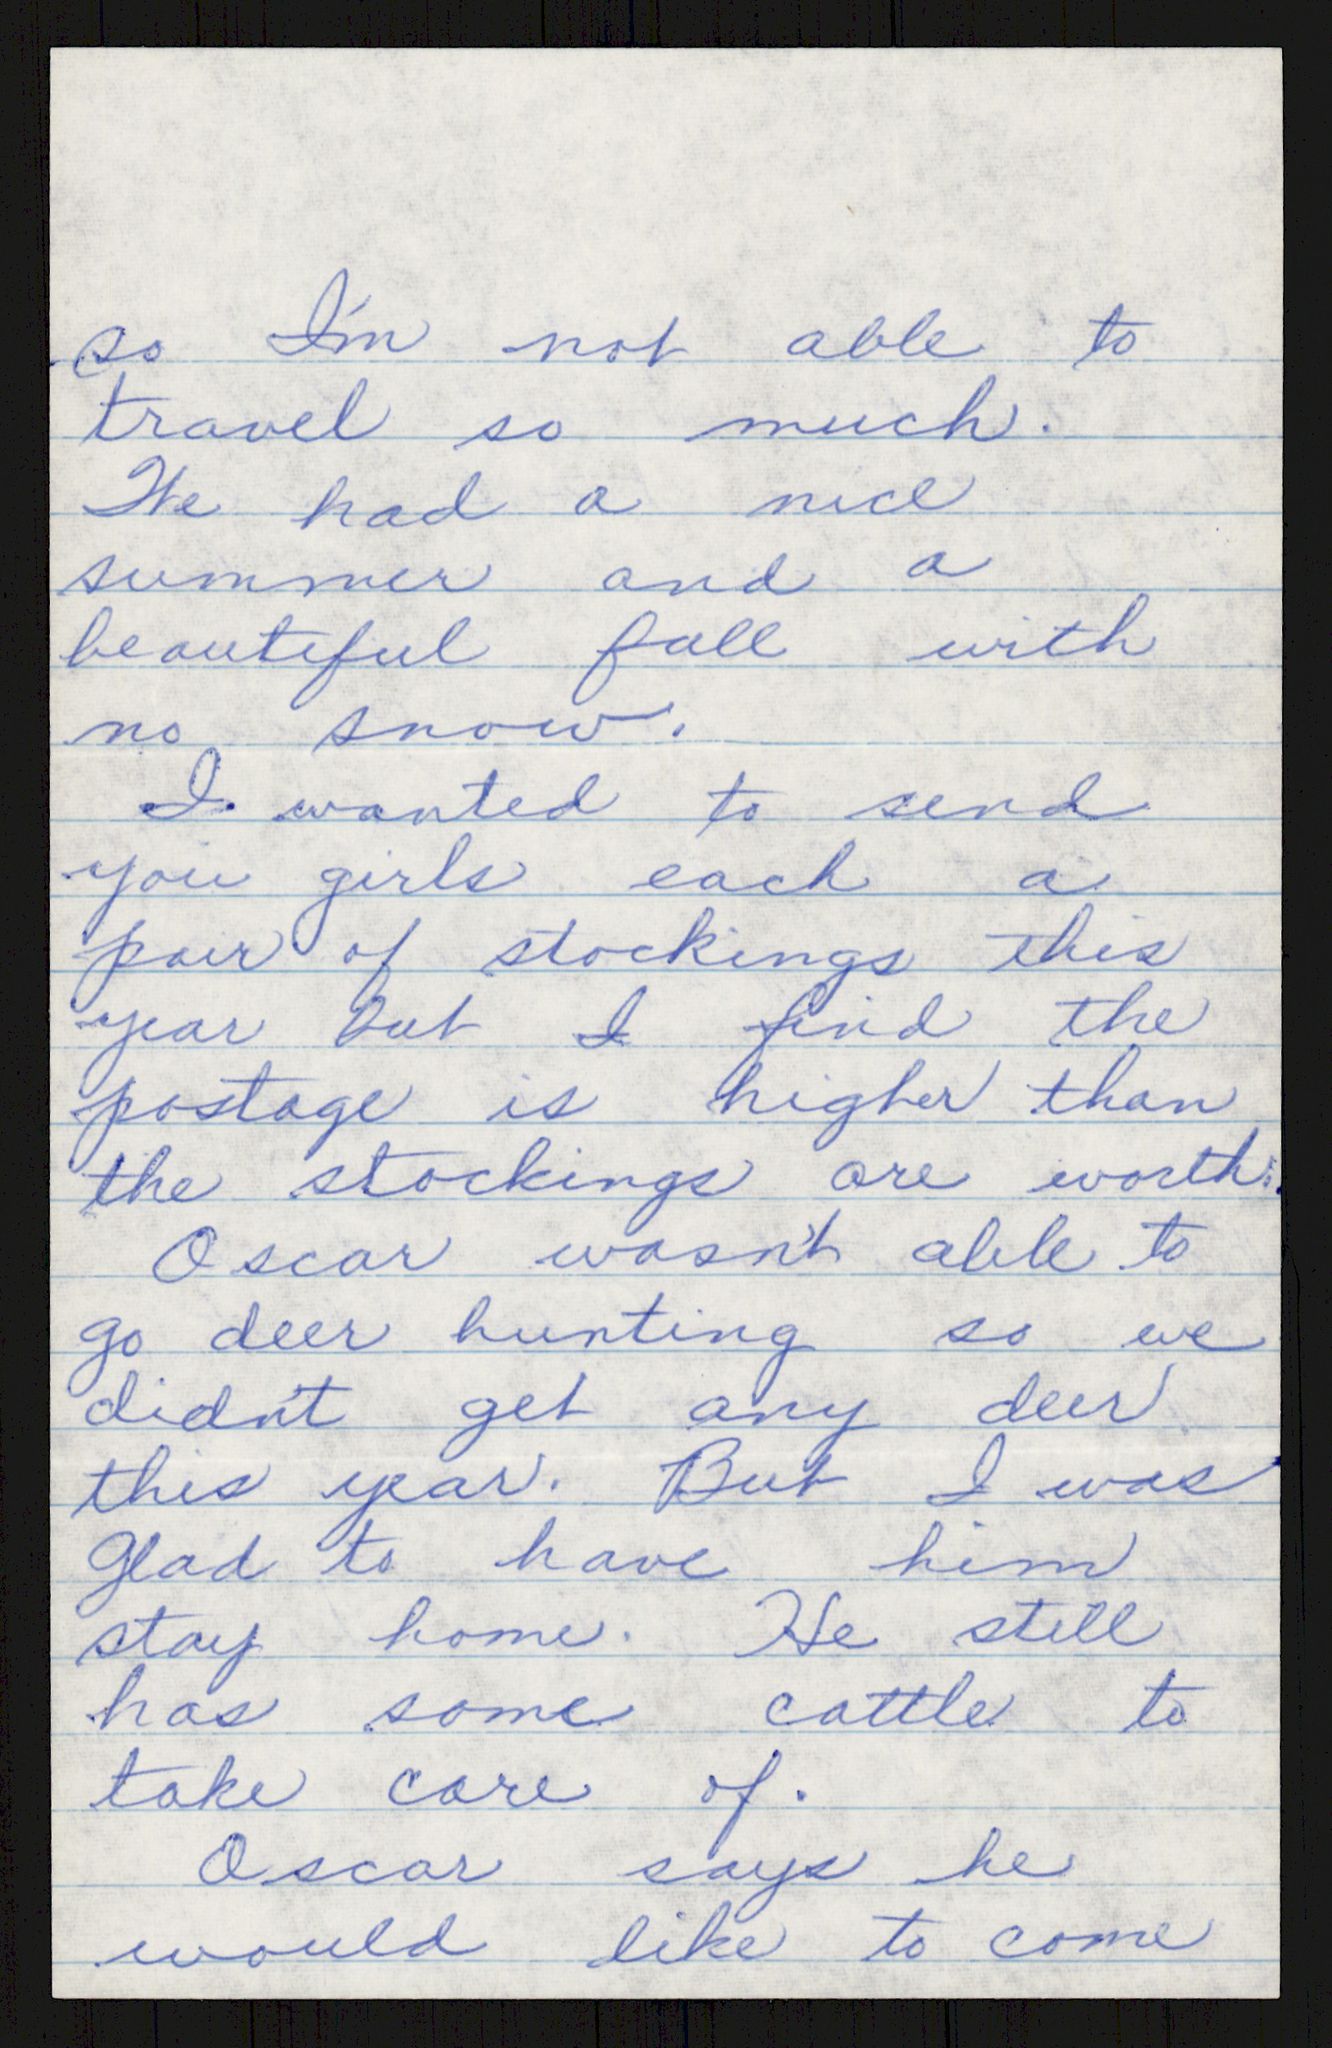 so I'm not able to
travel so much.
We had a nice
summer and a
beautiful fall with
no snow.
I wanted to send
you girls each a
pair of stockings this
year but I find the
postage is higher than
the stockings are worth.
Oscar wasn't able to
go deer hunting so we
didn't get any deer
this year. But I was
glad to have him
stay home. He still
has some cattle to
take care of.
Oscar says he
would like to come